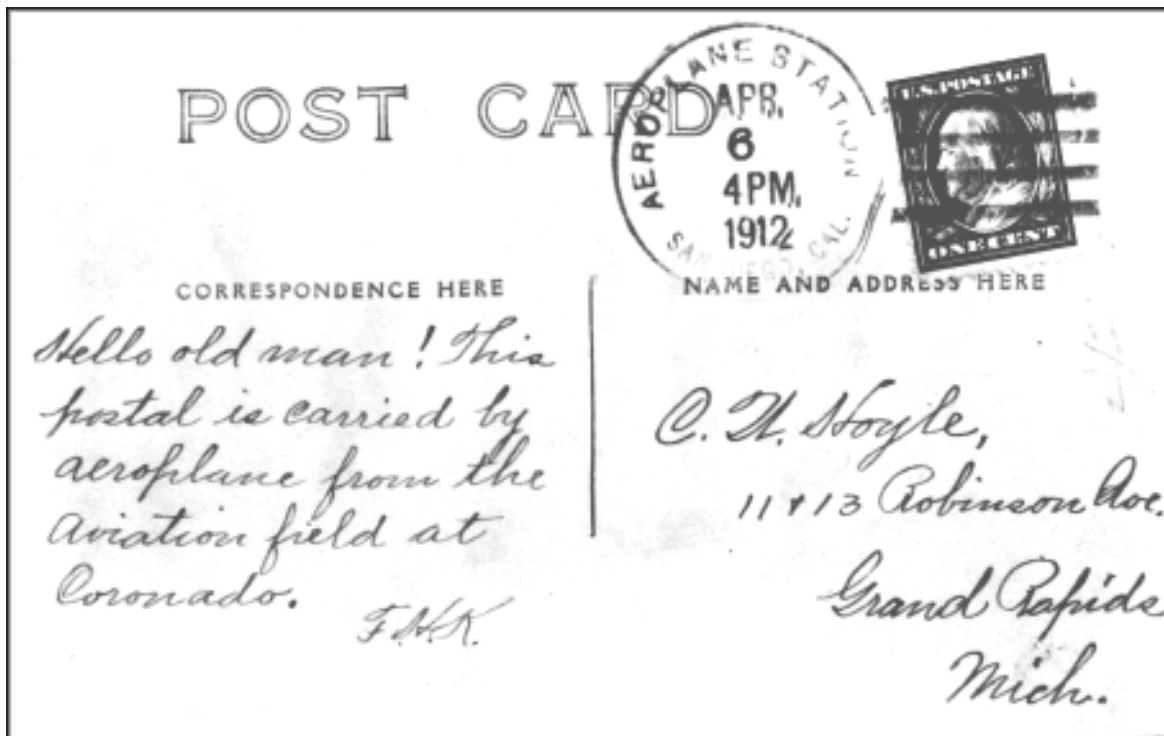 POST CARD
AEROPLANE STATION
APR.
6
4 PM.
1912
SAN DIEGO, CAL.
U.S. POSTAGE
ONE CENT
CORRESPONDENCE HERE
Hello old man! This
postal is carried by
aeroplane from the
aviation field at
Coronado.
F.H.K.
NAME AND ADDRESS HERE
C. H. Hoyle,
11 & 13 Robinson Ave.
Grand Rapids
Mich.